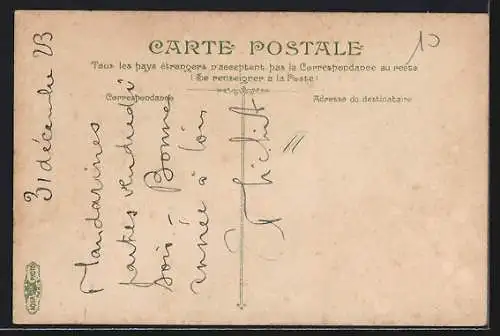 CARTE POSTALE
Tous les pays étrangers n'acceptent pas la Correspondance au recto
(Se renseigner à la Poste)
Correspondance
Adresse du destinataire
10
31 décembre 23
Mandarines
parties vendredi
soir - Bonne
année à tous